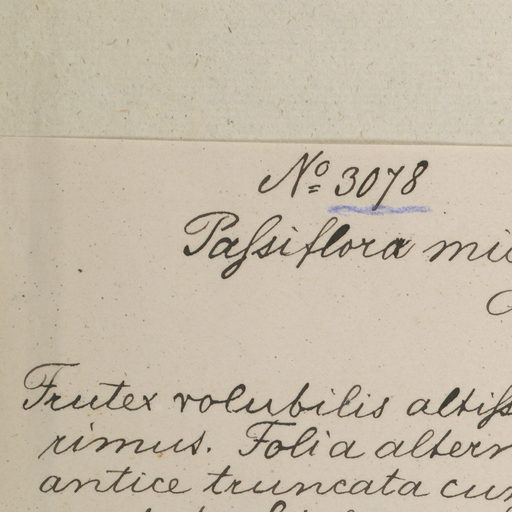 No 3078
Paſsiflora
Frutex volubilis altiſs
rimus. Folia altern
antice truncata cum